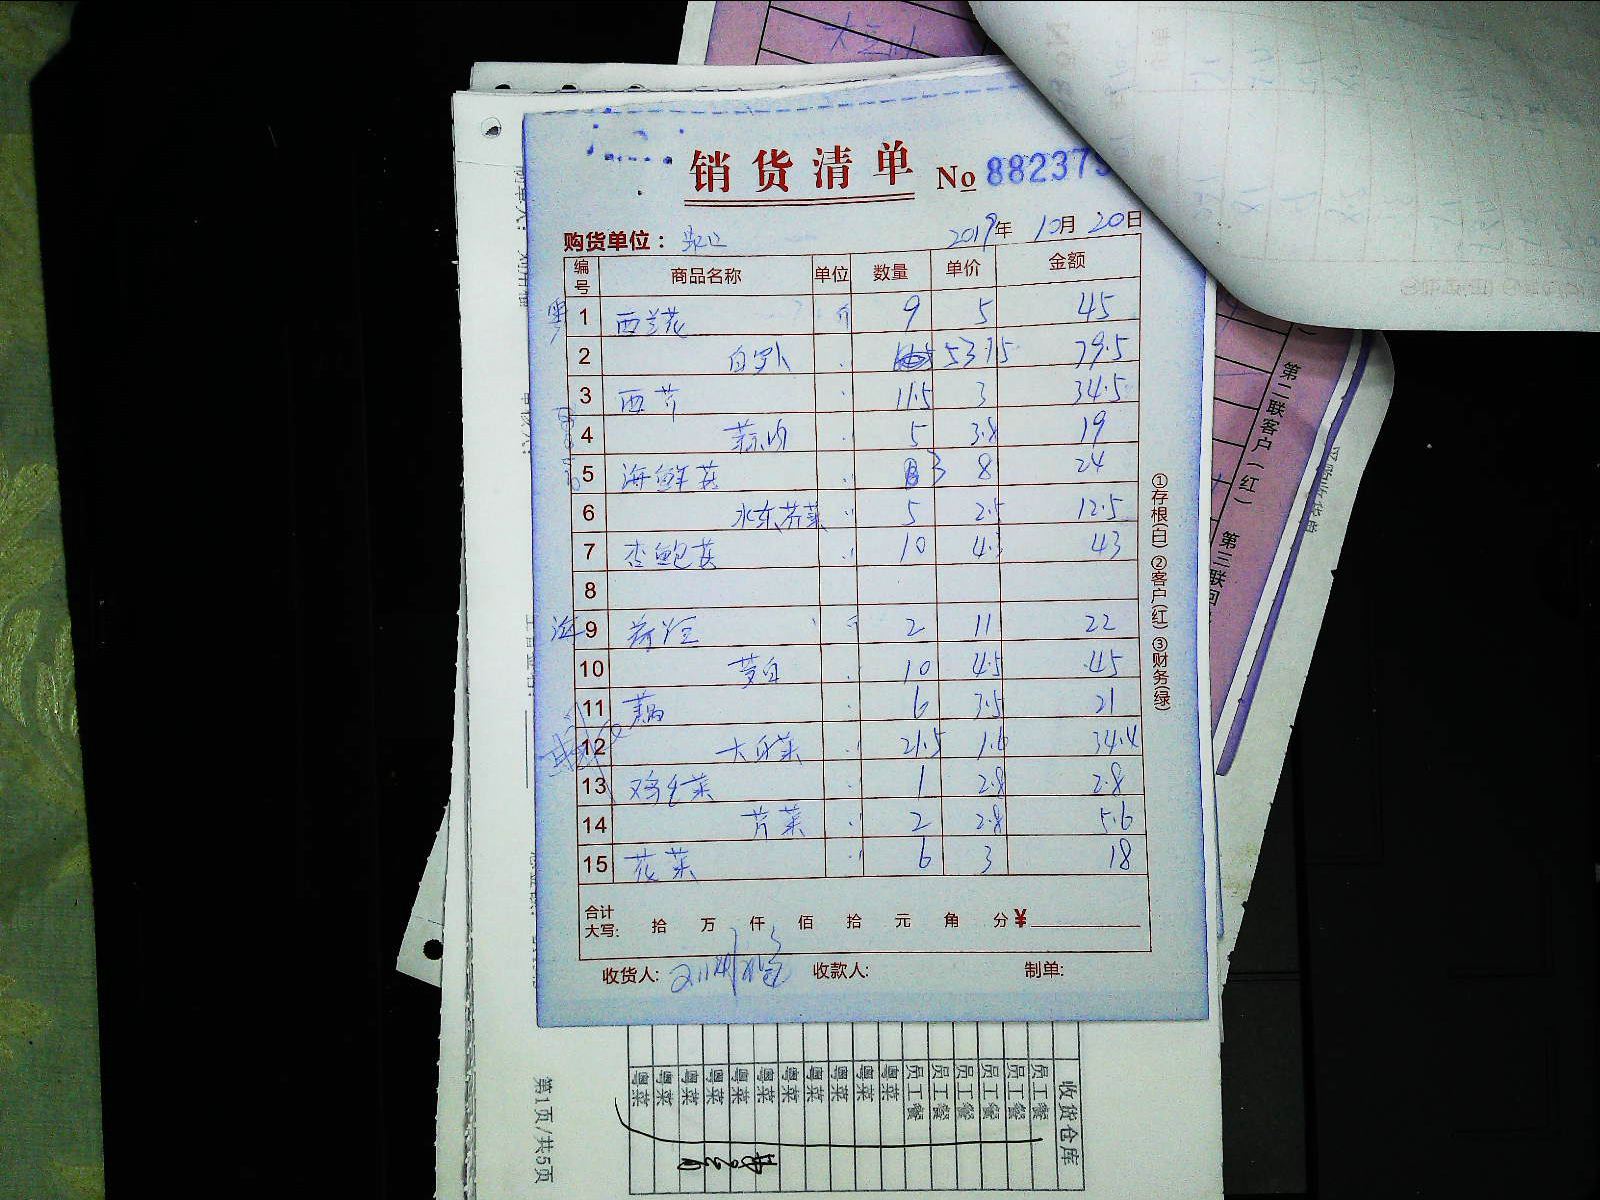 销货清单 No 882379
购货单位： 2019年 10月 20日
编号 商品名称 单位 数量 单价 金额
1 西兰花 斤 9 5 45
2 白罗卜 〃 53 1.5 79.5
3 西芹 〃 11.5 3 34.5
4 〃 5 3.8 19
5 海鲜菇 〃 3 8 24
6 水东芥菜 〃 5 2.5 12.5
7 杏鲍菇 〃 10 4.3 43
8
9 荷兰豆 斤 2 11 22
10 茭白 〃 10 4.5 45
11 藕 〃 6 3.5 21
12 大白菜 〃 21.5 1.6 34.4
13 鸡毛菜 〃 1 2.8 2.8
14 芹菜 〃 2 2.8 5.6
15 花菜 〃 6 3 18
合计大写: 拾 万 仟 佰 拾 元 角 分 ¥
收货人: 收款人: 制单:
①存根(白) ②客户(红) ③财务(绿)
第二联客户(红)
第三联回
收货仓库
员工餐
员工餐
员工餐
员工餐
员工餐
员工餐
粤菜
粤菜
粤菜
粤菜
粤菜
粤菜
粤菜
粤菜
粤菜
粤菜
粤菜
第1页/共5页